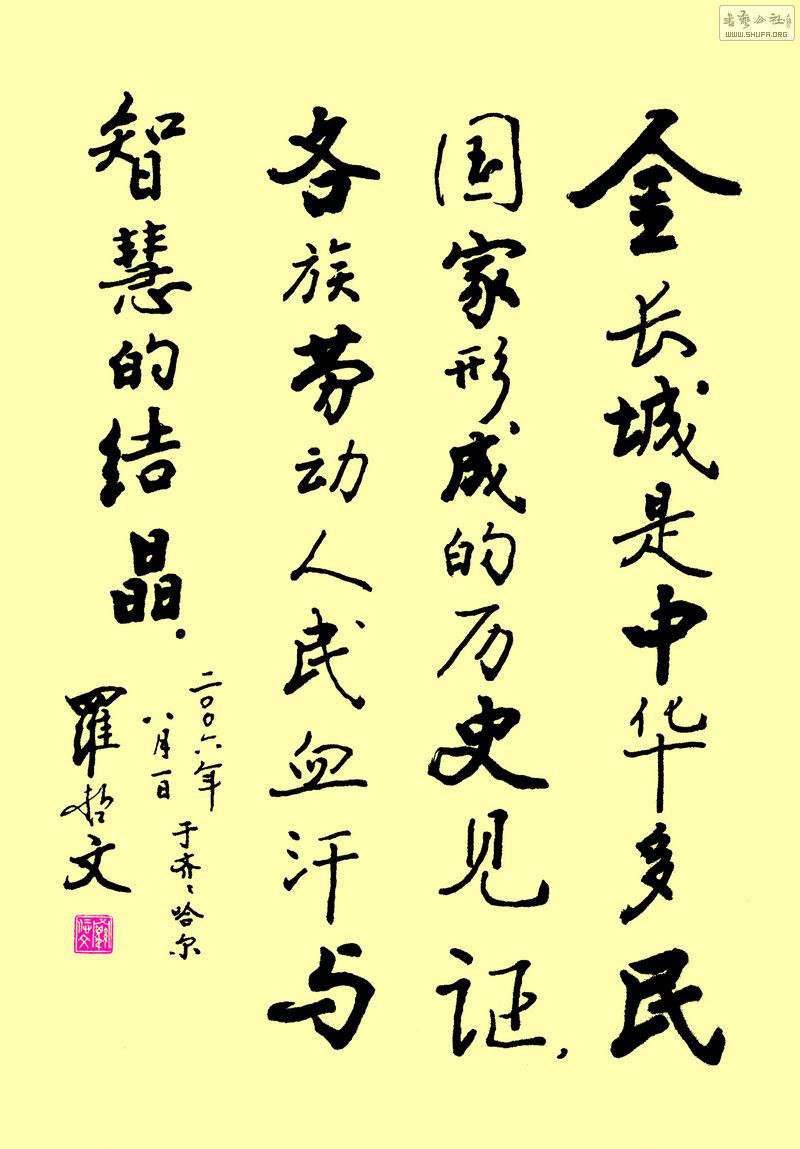 金长城是中华多民
国家形成的历史见证,
各族劳动人民血汗与
智慧的结晶.
二〇〇六年
八月一日
于齐齐哈尔
罗哲文
书艺公社
WWW.SHUFA.ORG